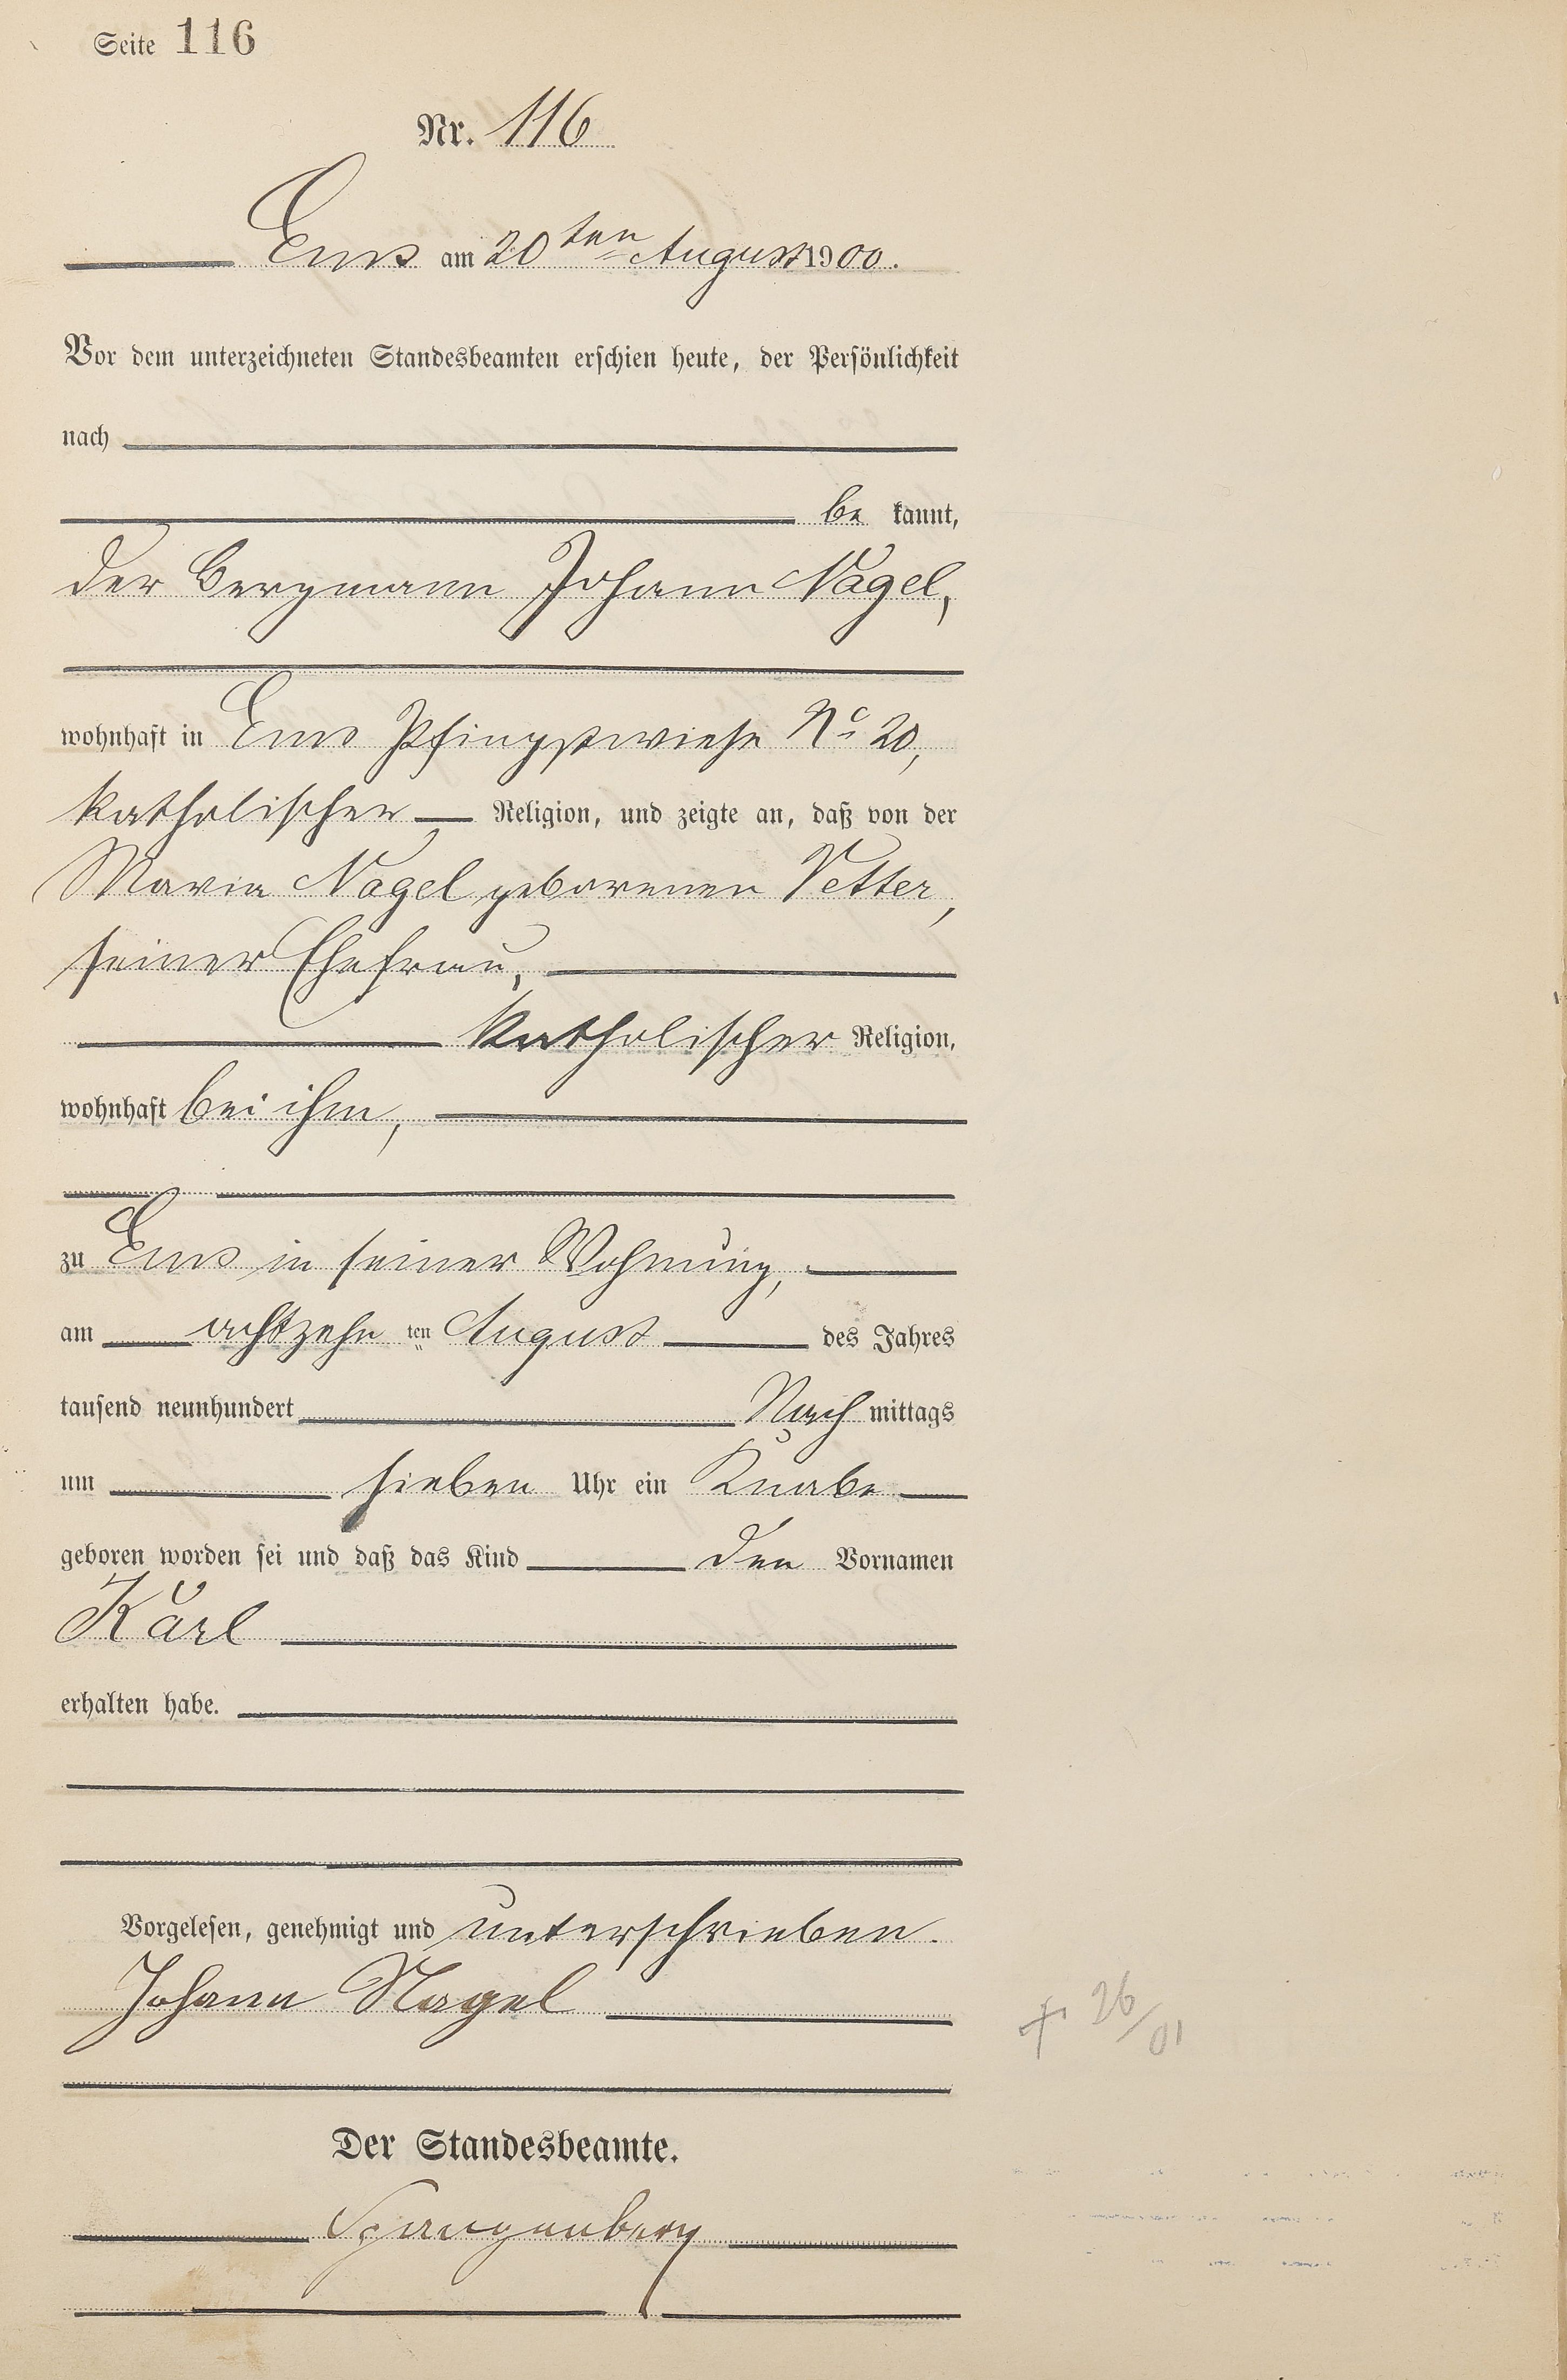 Seite 116
Nr. 116
Ems am 20ten August 1900.
Vor dem unterzeichneten Standesbeamten erschien heute, der Persönlichkeit
nach
be kannt,
der Bergmann Johann Nagel,
wohnhaft in Ems Pfingstwiese No 20,
katholischer Religion, und zeigte an, daß von der
Maria Nagel geborenen Vetter,
seiner Ehefrau,
katholischer Religion,
wohnhaft bei ihm,
zu Ems in seiner Wohnung,
am achtzehn ten August des Jahres
tausend neunhundert Nach mittags
um sieben Uhr ein Knabe
geboren worden sei und daß das Kind den Vornamen
Karl
erhalten habe.
Vorgelesen, genehmigt und unterschrieben.
Johann Nagel
† 26/01
Der Standesbeamte.
Spangenberg